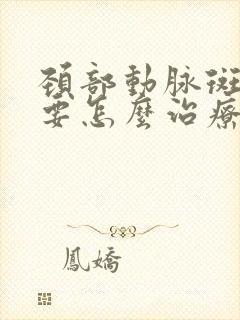 頸部動脉斑
要怎麼治療
鳳嬌